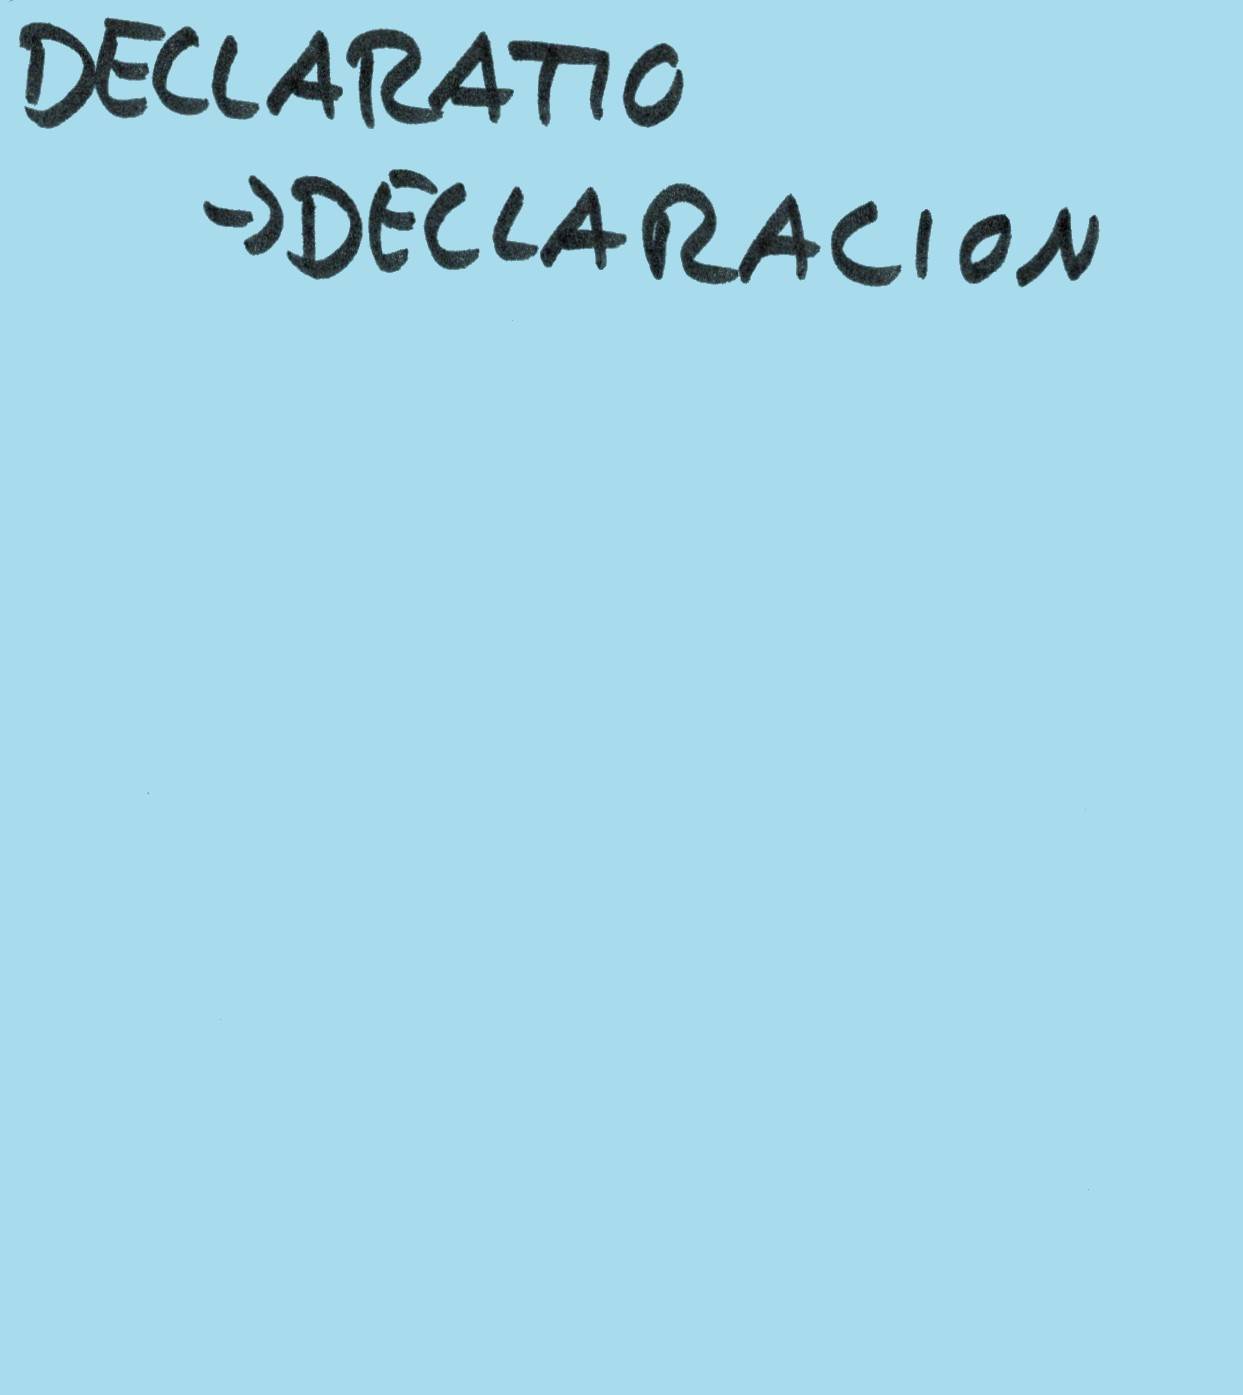 DECLARATIO
→DECLARACION